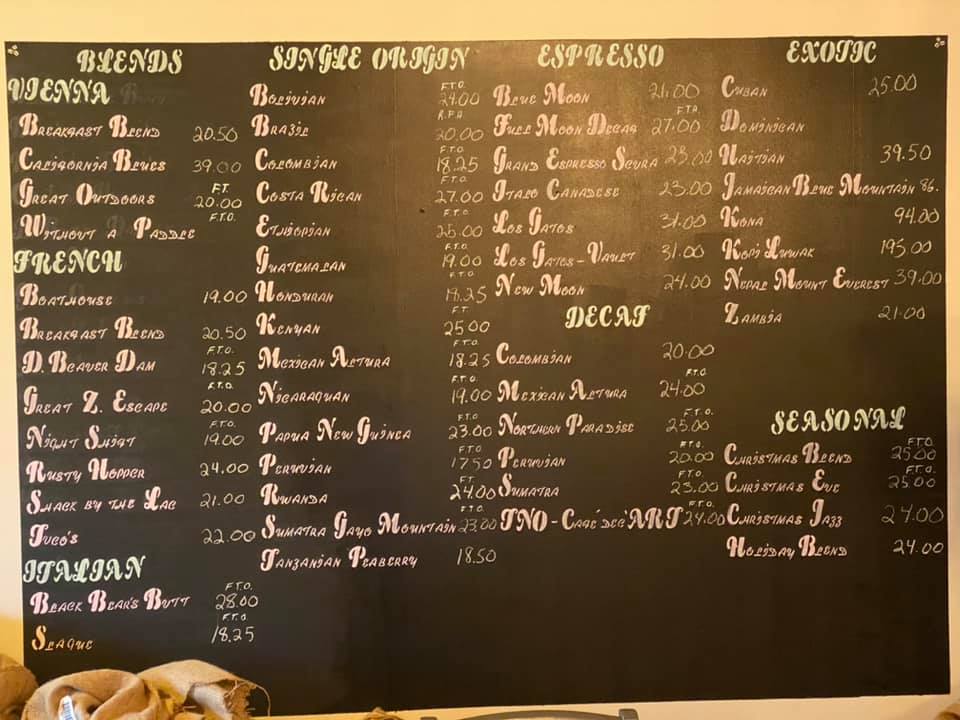 BLENDS
VIENNA
Breakfast Blend 20.50
California Blues 39.00
Great Outdoors F.T. 20.00
Without A Paddle F.T.O.
FRENCH
Boathouse 19.00
Breakfast Blend 20.50
D. Beaver Dam F.T.O. 18.25
Great Z. Escape F.T.O. 20.00
Night Shift F.T.O. 19.00
Rusty Hopper 24.00
Shack by the Lac 21.00
Tuco's 22.00
ITALIAN
Black Bear's Butt F.T.O. 28.00
F.T.O. 18.25
SINGLE ORIGIN
Bolivian F.T.O. 24.00
Brazil R.F.A 20.00
Colombian F.T.O. 18.25
Costa Rican F.T.O. 27.00
Ethiopian F.T.O. 25.00
Guatemalan F.T.O. 19.00
Honduran F.T.O. 18.25
Kenyan F.T. 25.00
Mexican Altura F.T.O. 18.25
Nicaraguan F.T.O. 19.00
Papua New Guinea F.T.O. 23.00
Peruvian F.T.O. 17.50
Rwanda F.T. 24.00
Sumatra Gayo Mountain F.T.O. 23.00
Tanzanian Peaberry 18.50
ESPRESSO
Blue Moon 21.00
Full Moon Decaf F.T.O. 27.00
Grand Espresso Scura 23.00
Italo Canadese 23.00
Los Gatos 31.00
Los Gatos - Vault 31.00
New Moon 24.00
DECAF
Colombian 20.00
Mexican Altura F.T.O. 24.00
Northern Paradise F.T.O. 25.00
Peruvian F.T.O. 20.00
Sumatra F.T.O. 23.00
TNO - Café déc'ART F.T.O. 24.00
EXOTIC
Cuban 25.00
Dominican
Haitian 39.50
Jamaican Blue Mountain 86.
Kona 94.00
Kopi Luwak 195.00
Nepal Mount Everest 39.00
Zambia 21.00
SEASONAL
Christmas Blend F.T.O. 25.00
Christmas Eve F.T.O. 25.00
Christmas Jazz 24.00
Holiday Blend 24.00